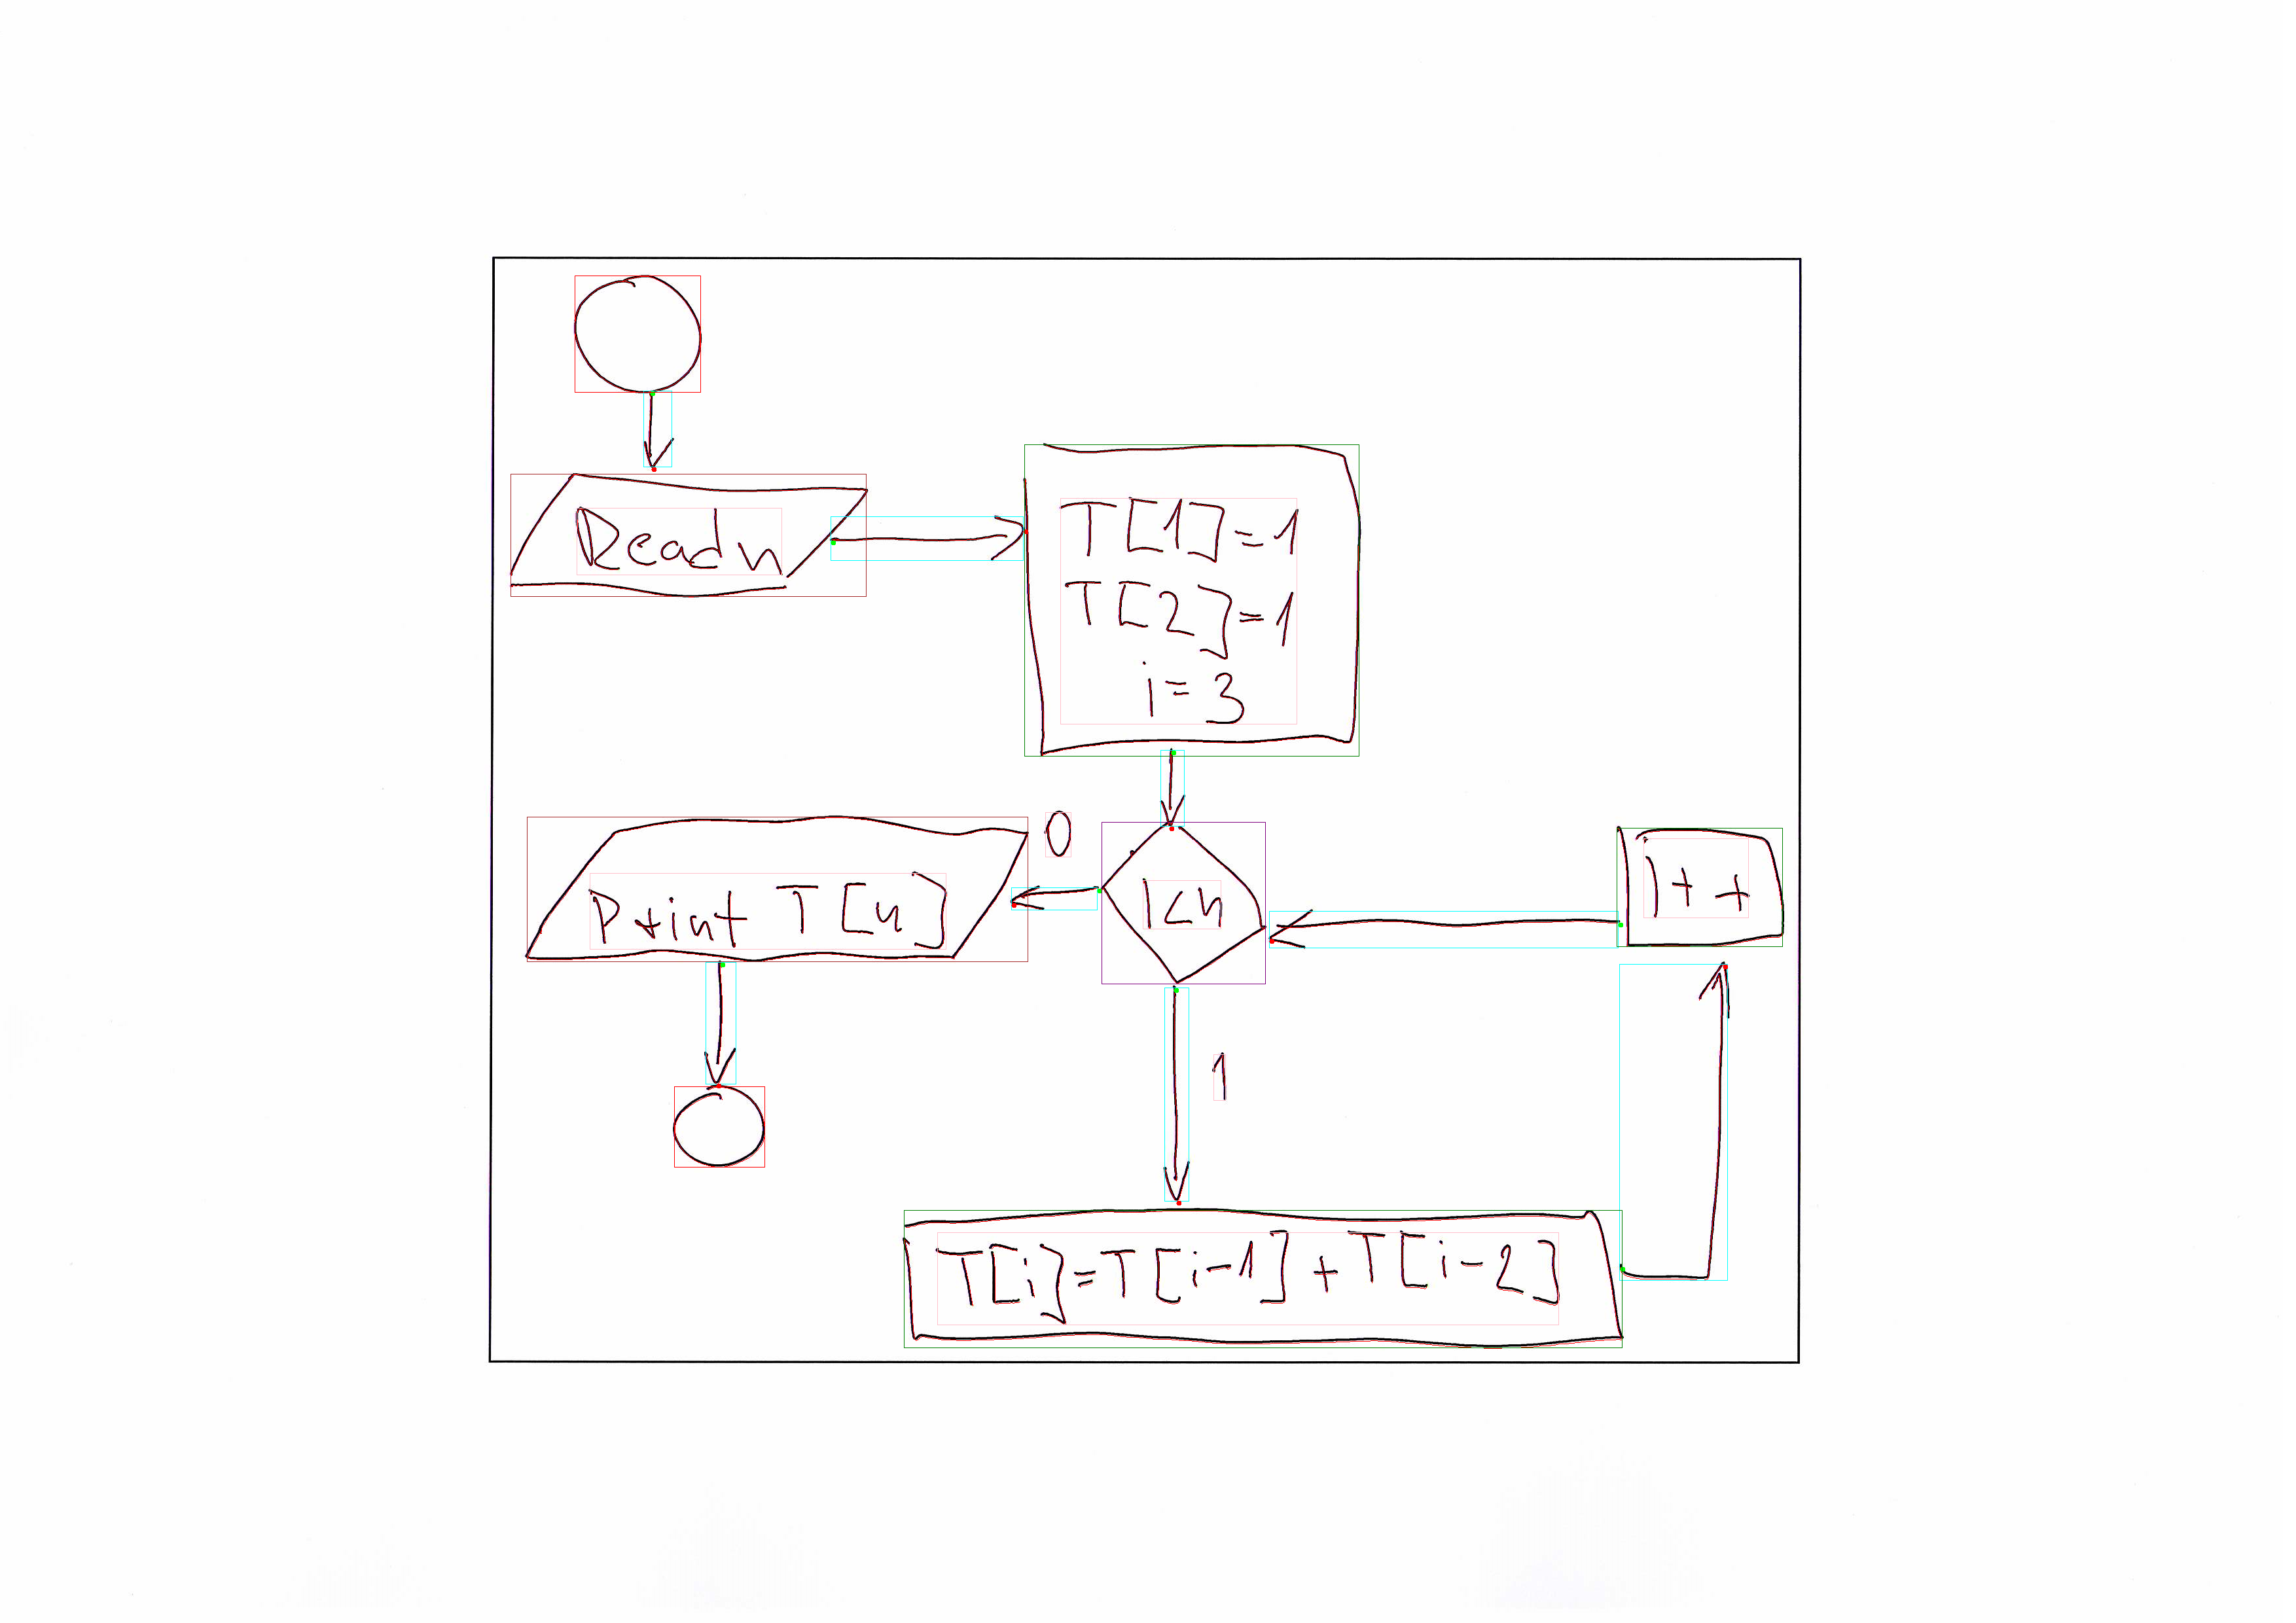 Read n
T[1]=1
T[2]=1
i=3
0
Print T[n]
i<n
i++
1
T[i]=T[i-1]+T[i-2]